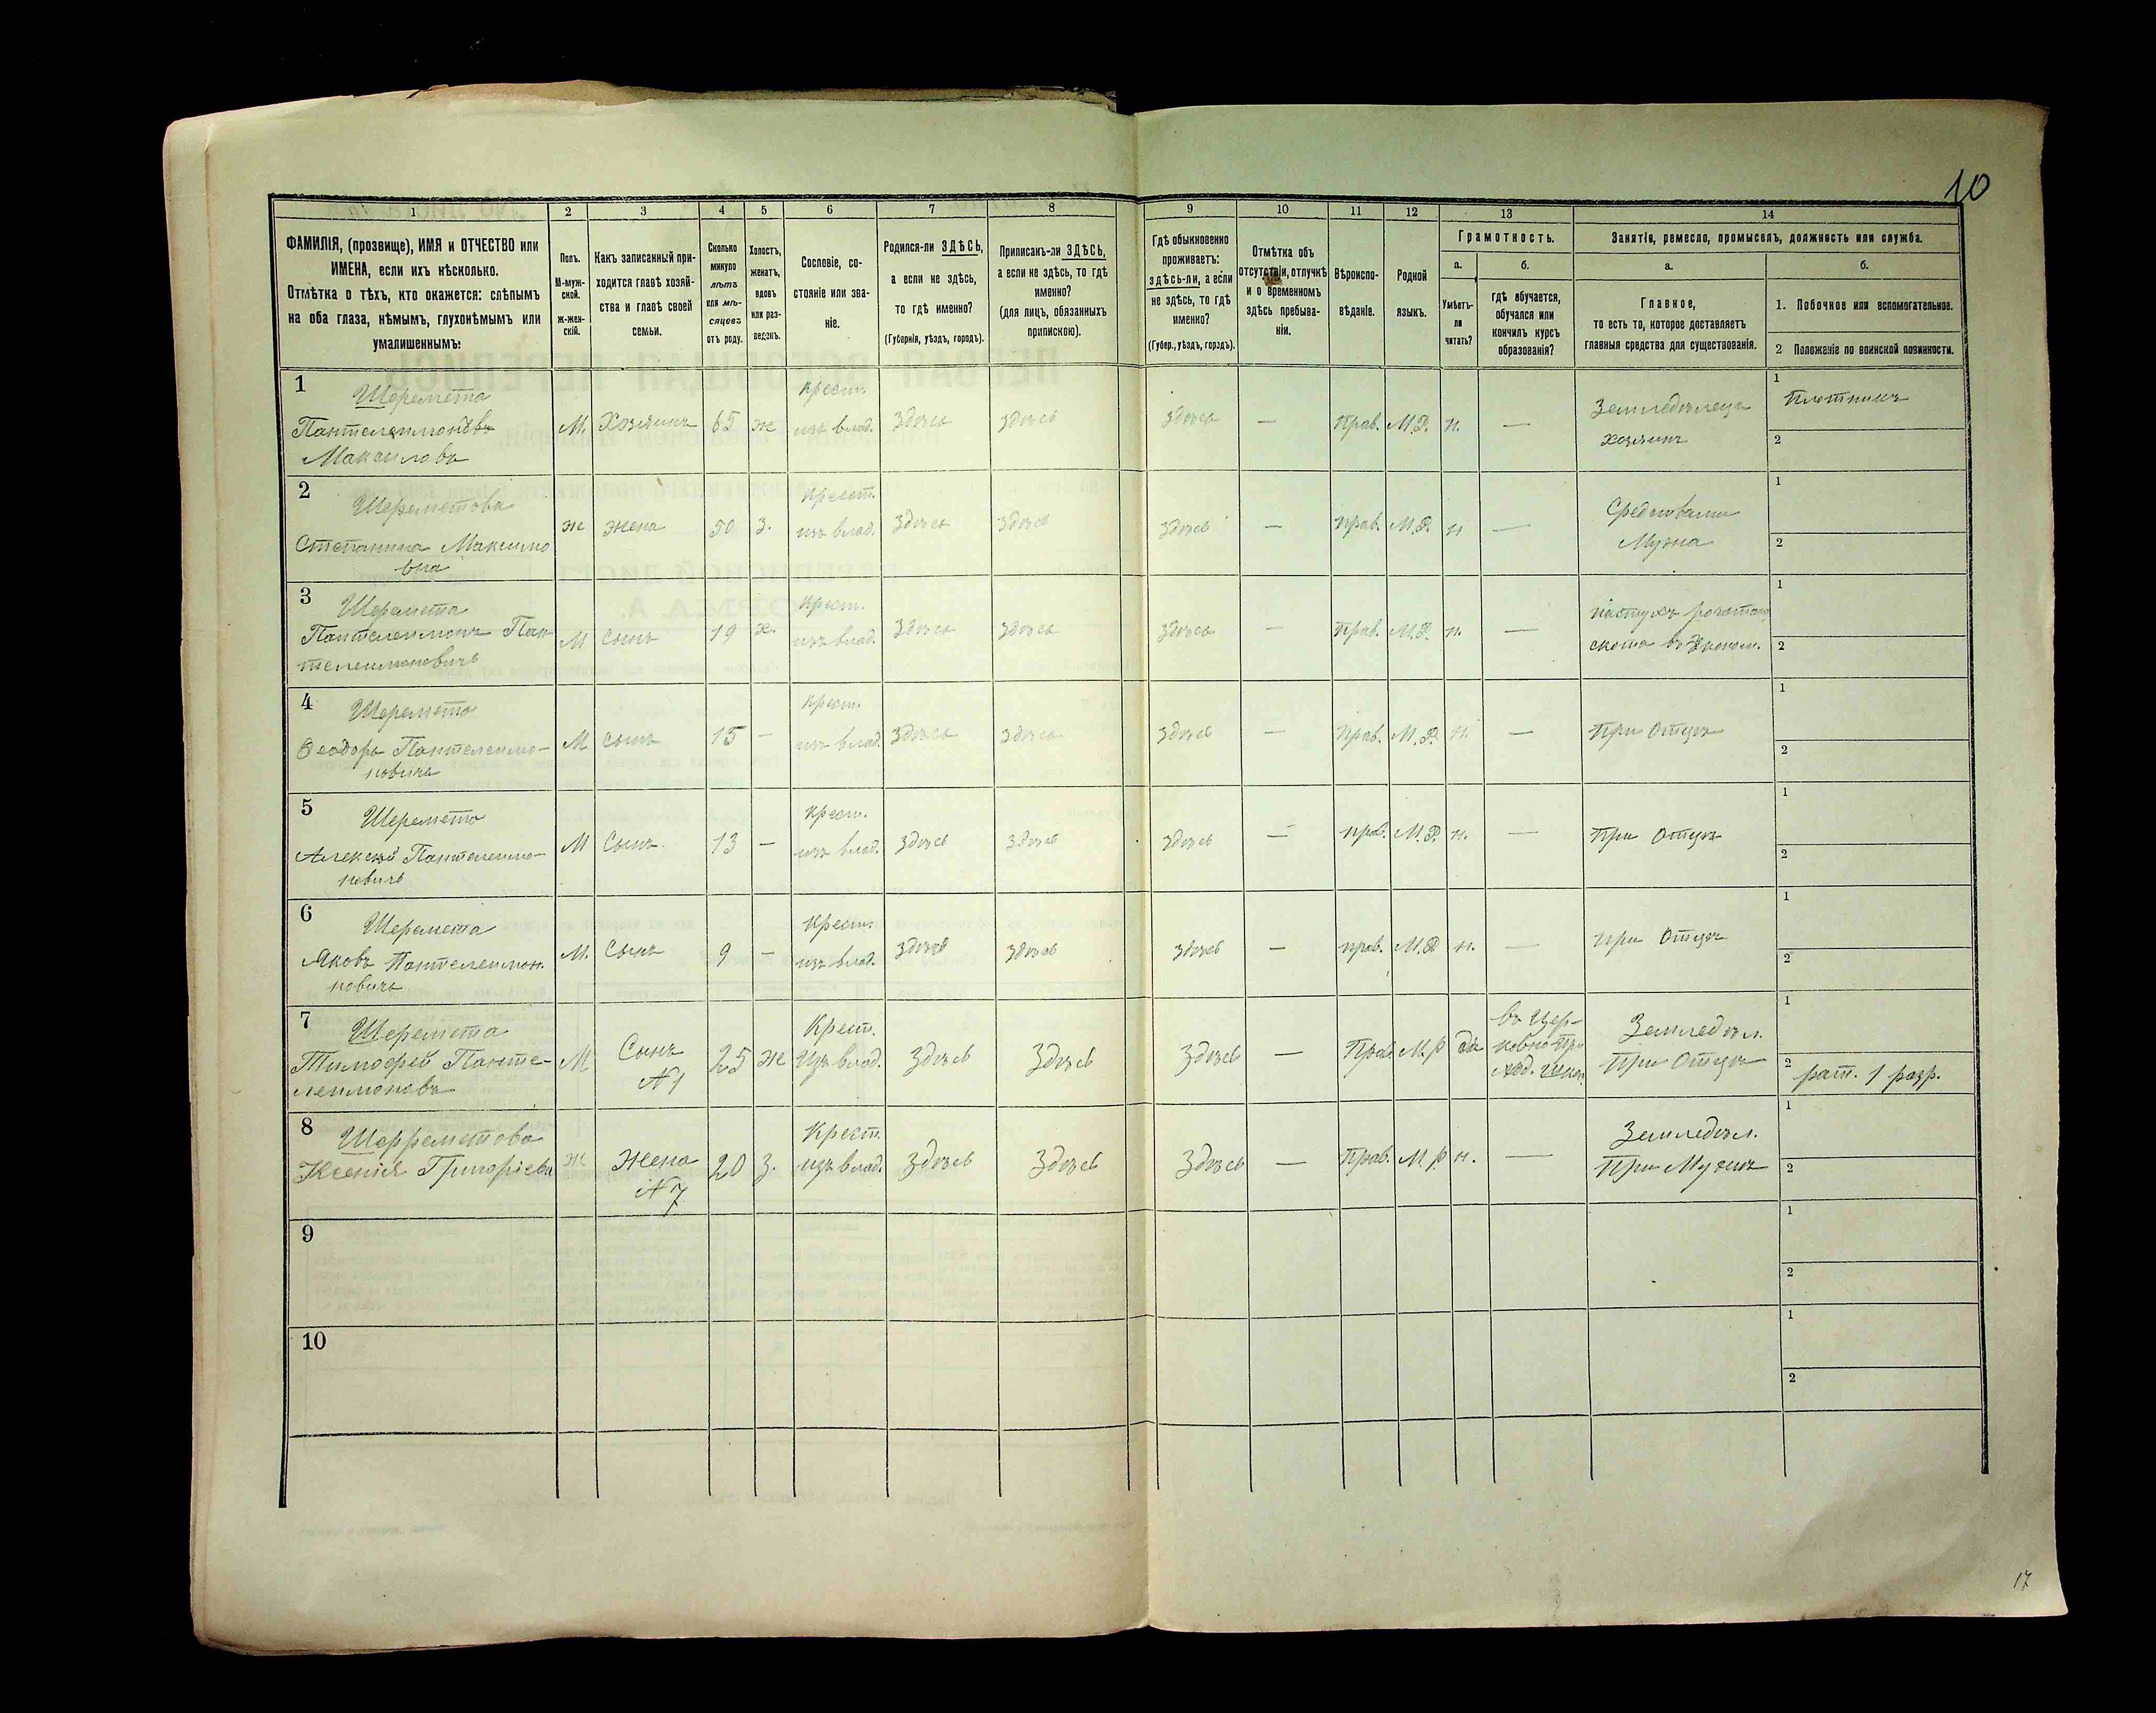 10
1 2 3 4 5 6 7 8 9 10 11 12 13 14
ФАМИЛІЯ, (прозвище), ИМЯ и ОТЧЕСТВО или
ИМЕНА, если ихъ нѣсколько.
Отмѣтка о тѣхъ, кто окажется: слѣпымъ
на оба глаза, нѣмымъ, глухонѣмымъ или
умалишеннымъ:
Полъ.
М-муж-
ской.
ж-жен-
скій.
Какъ записанный при-
ходится главѣ хозяй-
ства и главѣ своей
семьи.
Сколько
минуло
лѣтъ
или мѣ-
сяцевъ
отъ роду.
Холостъ,
женатъ,
вдовъ
или раз-
веденъ.
Сословіе, со-
стояніе или зва-
ніе.
Родился-ли ЗДѢСЬ,
а если не здѣсь,
то гдѣ именно?
(Губернія, уѣздъ, городъ).
Приписанъ-ли ЗДѢСЬ,
а если не здѣсь, то гдѣ
именно?
(для лицъ, обязанныхъ
припискою).
Гдѣ обыкновенно
проживаетъ:
здѣсь-ли, а если
не здѣсь, то гдѣ
именно?
(Губер., уѣздъ, городъ).
Отмѣтка объ
отсутствіи, отлучкѣ
и о временномъ
здѣсь пребыва-
ніи.
Вѣроиспо-
вѣданіе.
Родной
языкъ.
Грамотность.
а.
Умѣетъ-
ли
читать?
б.
гдѣ обучается,
обучался или
кончилъ курсъ
образованія?
Занятіе, ремесло, промыселъ, должность или служба.
а.
Главное,
то есть то, которое доставляетъ
главныя средства для существованія.
б.
1. Побочное или вспомогательное.
2 Положеніе по воинской повинности.
1
Шеремета
Пантелеимонъ
Максимовъ
М. Хозяинъ 65 ж
Крест.
изъ влад.
здѣсь здѣсь здѣсь — Прав. М.Р. н. —
Земледѣлецъ
хозяинъ
1
Плотникъ
2
2
Шереметова
Степанида Максимо
вна
ж жена 50 з.
Крест.
изъ влад.
здѣсь здѣсь здѣсь — прав. М.Р. н —
Средствами
Мужа
1
2
3
Шеремета
Пантелеимонъ Пан
телеимоновичъ
М сынъ 19 х.
Крест.
изъ влад.
здѣсь здѣсь здѣсь — Прав. М.Р. н. —
пастухъ рогатаго
скота въ Эконом.
1
2
4
Шеремета
Ѳеодоръ Пантелеимо-
новичъ
М сынъ 15 —
Крест.
изъ влад.
здѣсь здѣсь здѣсь — Прав. М.Р. н. —
При Отцѣ
1
2
5
Шеремета
Алексѣй Пантелеимо-
новичъ
М Сынъ. 13 —
Крест.
изъ влад.
здѣсь здѣсь здѣсь — прав. М.Р. н. —
При Отцѣ
1
2
6
Шеремета
Яковъ Пантелеимон.
новичъ
М. Сынъ 9 —
Крест.
изъ влад.
здѣсь здѣсь здѣсь — прав. М.Р н. —
При Отцѣ
1
2
7
Шеремета
Тимофей Панте-
леимоновъ
М
Сынъ
N 1
25 ж
Крест.
изъ влад.
здѣсь здѣсь здѣсь — Прав. М.Р да
въ Цер-
ковно-При
ход. школ.
Земледѣл.
При Отцѣ
1
2
рат. 1 разр.
8
Шерреметова
Ксенія Григоріева
ж
Жена
N 7
20 з.
Крест.
изъ влад.
здѣсь здѣсь здѣсь — Прав. М.Р н. —
Земледѣл.
При Мужѣ
1
2
9
1
2
10
1
2
17